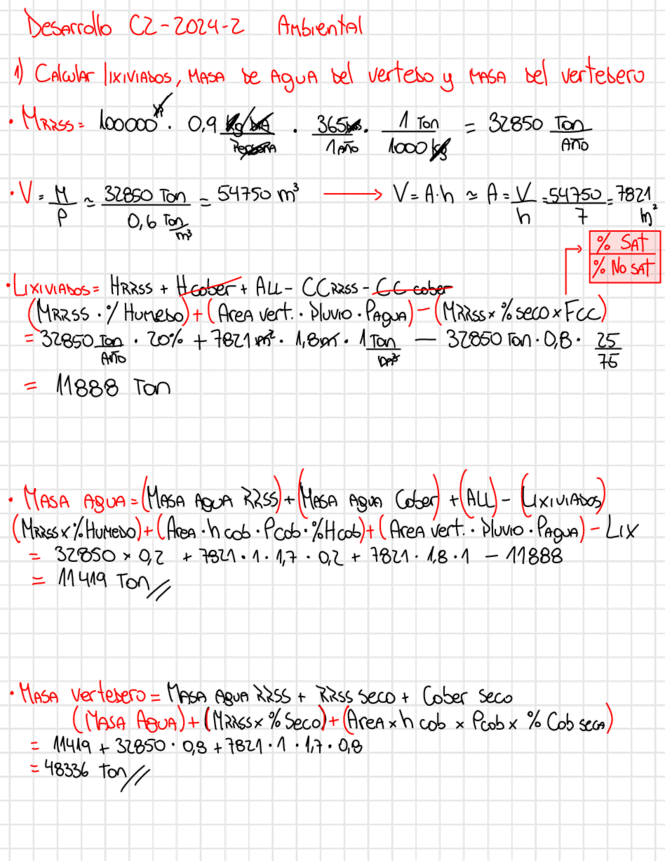 Desarrollo C2-2024-2 Ambiental
1) Calcular lixiviados, Masa de Agua del vertedo y masa del vertedero
• MRRSS = 100000 · 0,9 Kg/día / Persona · 365 días / 1 Año · 1 Ton / 1000 kg = 32850 Ton / Año
• V = M / ρ ≃ 32850 Ton / 0,6 Ton/m³ = 54750 m³ → V = A·h ≃ A = V / h = 54750 / 7 = 7821 m²
% Sat
% No sat
• Lixiviados = HRRSS + Hcober + ALL - CCRRSS - CC cober
(MRRSS · % Humedo) + (Area vert. · Pluvio · Pagua) - (MRRSS x % seco x Fcc)
= 32850 Ton / Año · 20% + 7821 m² · 1,8m · 1 Ton / m³ - 32850 Ton · 0,8 · 25 / 75
= 11888 Ton
• Masa Agua = (Masa Agua RRSS) + (Masa Agua Cober) + (ALL) - (Lixiviados)
(MRRSS x % Humedo) + (Area · h cob · Pcob · % Hcob) + (Area vert. · Pluvio · Pagua) - Lix
= 32850 x 0,2 + 7821 · 1 · 1,7 · 0,2 + 7821 · 1,8 · 1 - 11888
= 11419 Ton //
• Masa vertedero = Masa Agua RRSS + RRSS seco + Cober seco
(Masa Agua) + (MRRSS x % Seco) + (Area x h cob x Pcob x % Cob seca)
= 11419 + 32850 · 0,8 + 7821 · 1 · 1,7 · 0,8
= 48336 Ton //